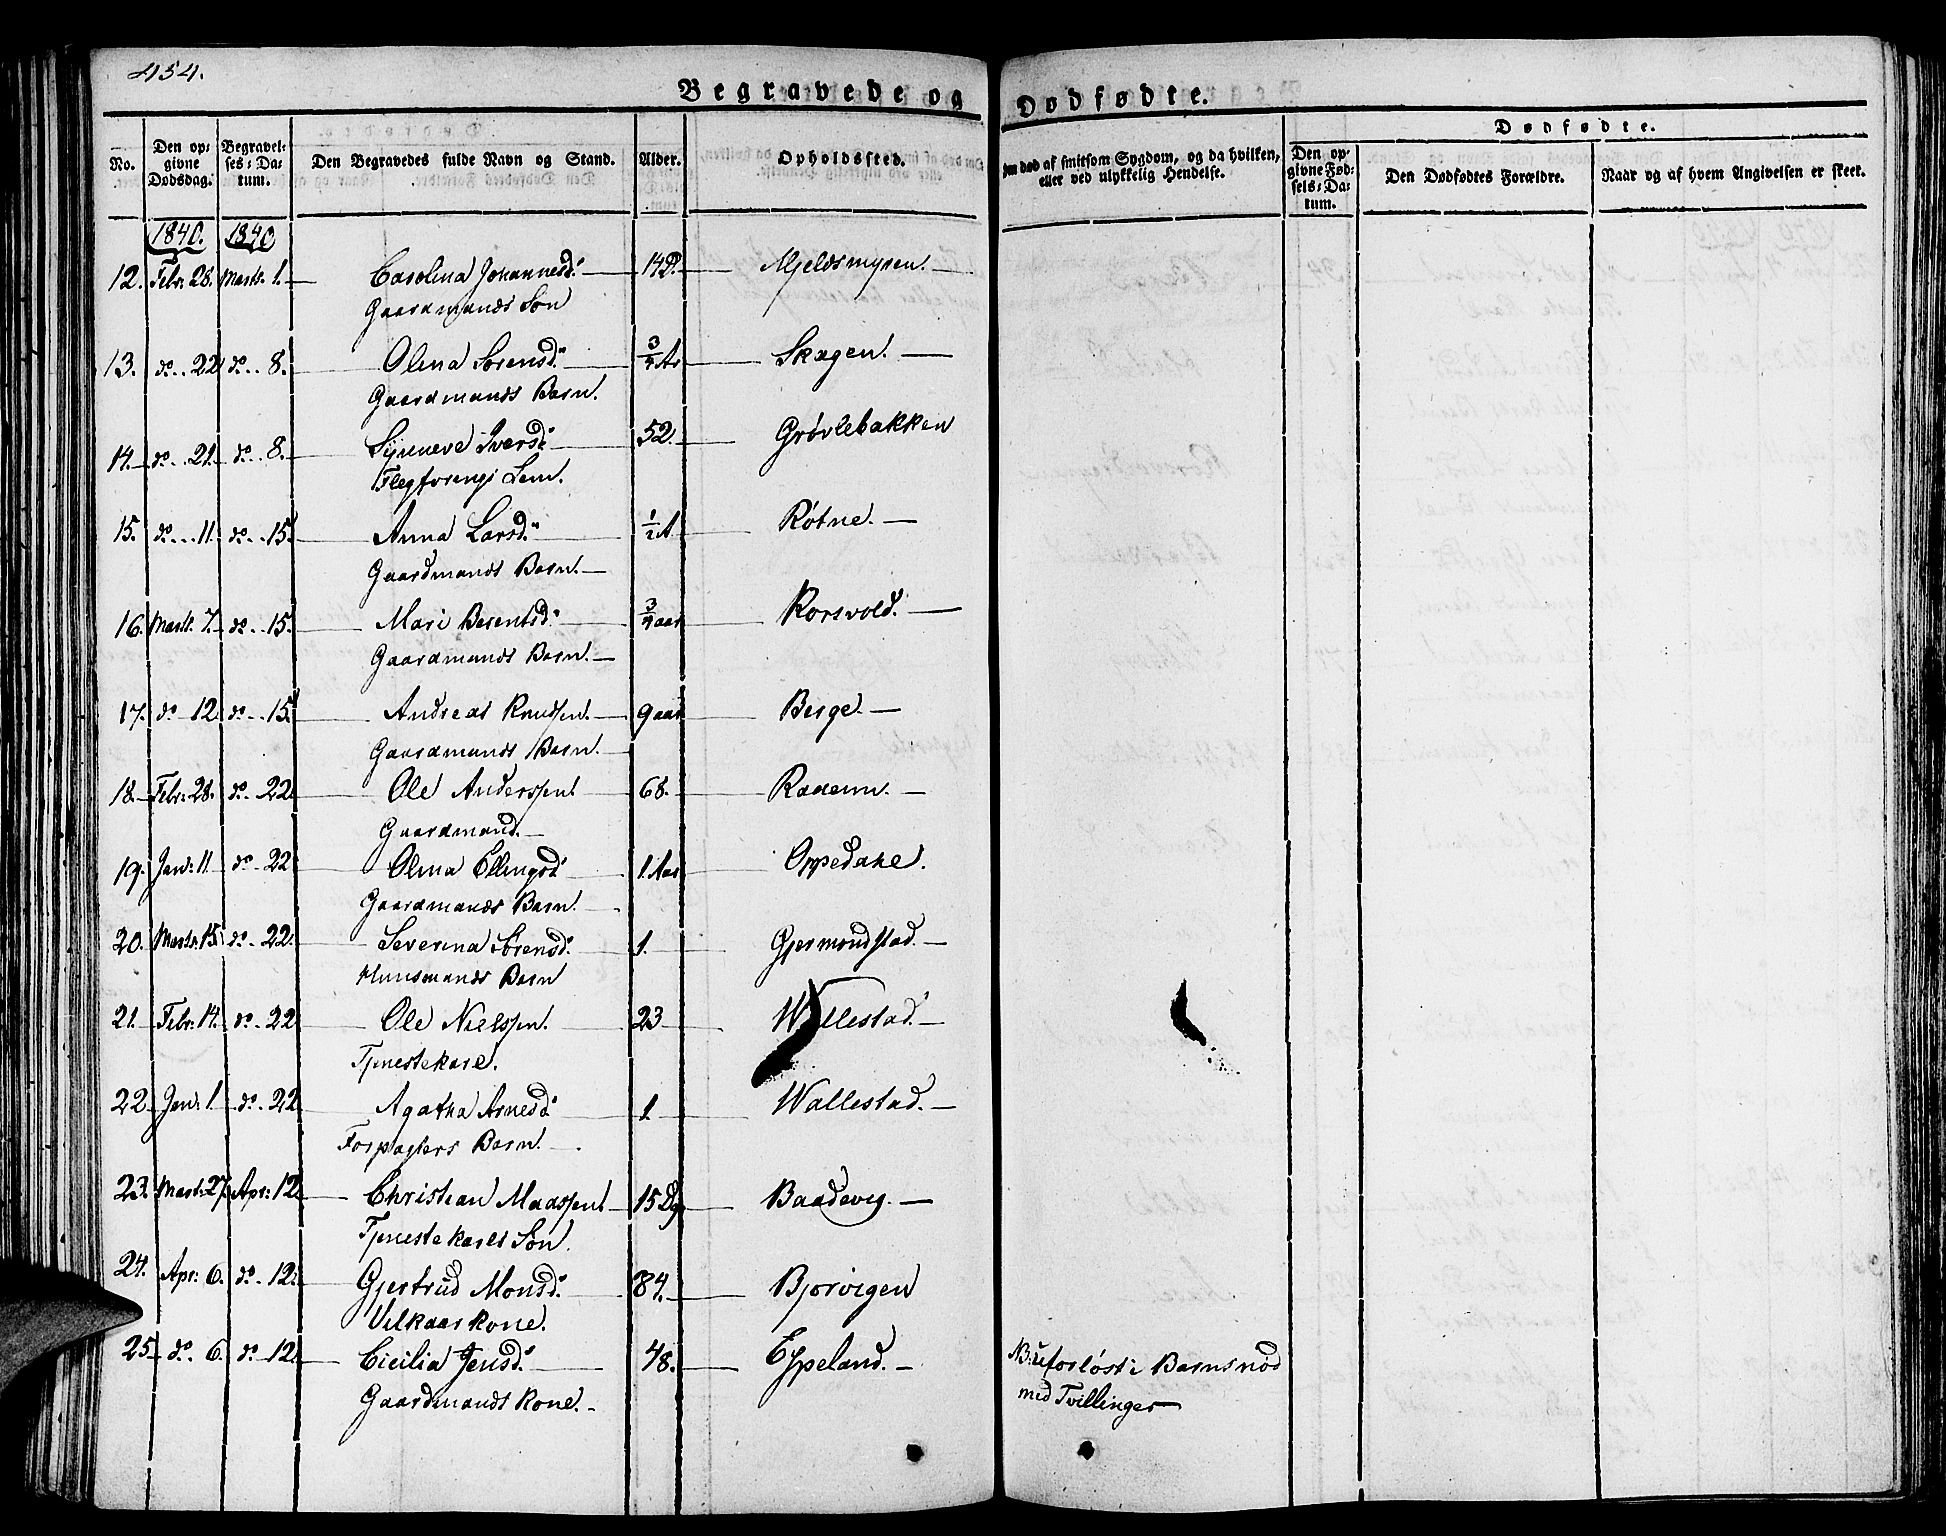 454.
Begravede og Dødfødte.
No. Den opgivne Dødsdag. Begravelses-Datum. Den Begravedes fulde Navn og Stand. Alder. Opholdssted. Om død af smitsom Sygdom, og da hvilken, eller ved ulykkelig Hendelse. Den opgivne Fødsels-Datum. Dødfødte. Den Dødfødtes Forældre. Naar og af hvem Angivelsen er skeet.
1840. 1840
12. Febr: 28. Marts. 1. Carolina Johannesd: 14 D. Mjeldsmyren.
Gaardmands Søn
13. do. 22 do. 8. Olina Sørensd: 3/4 Ar Skagen.
Gaardmands Barn.
14. do. 21. do. 8. Synneve Iversd: 52. Grøvlebakken
Lem.
15. do. 11. do. 15. Anna Larsd: 1/2 A Røtne.
Gaardmands Barn.
16. Marts. 7. do. 15. Mari Berentsd: 3/4 aar Korsvold.
Gaardmands Barn.
17. do 12. do. 15. Andreas Knudssen. 9 aar Berge.
Gaardmands Barn.
18. Febr: 28. do. 22. Ole Anderssen 68.
Gaardmand.
19. Jan: 11. do. 22 Olina Ellingsd: 1 Aar Oppedahl.
Gaardmands Barn.
20. Marts. 15. do. 22. Severina Sørensd: 1. Gjermondstad.
Huusmands Barn
21. Febr: 14. do. 22 Ole Nielssen. 23 Wallestad.
Tjenestekarl.
22. Jan: 1. do. 22 Agatha Arnesd: 1. Wallestad.
Forpagters Barn.
23. Marts: 27. Apr: 12. Christian Madssen 15 Dg Baadevig.
Tjenestekarls Søn.
24. Apr: 6. do. 12. Gjertrud Monsd: 84. Bjorvigen
Vilkaarkone.
25. do. 6. do. 12. Cicilia Jensd: 48. Eppeland.
NB: uforløst i Barnsnød
Gaardmands Kone.
med Tvillinger